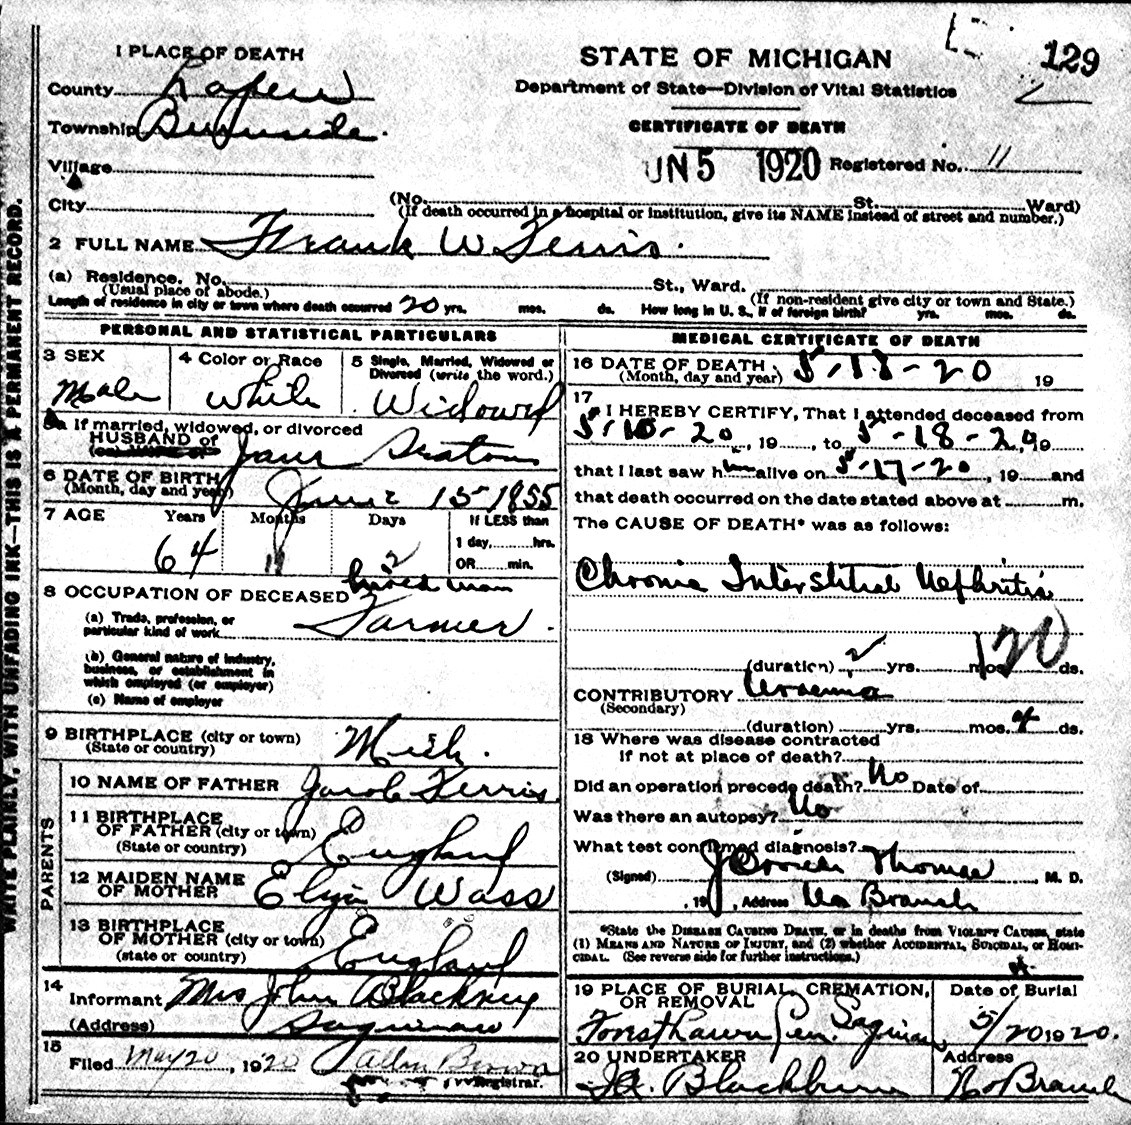 129
1 PLACE OF DEATH
STATE OF MICHIGAN
Department of State—Division of Vital Statistics
CERTIFICATE OF DEATH
County Lapeer
Township Burnside.
Village
JUN 5 1920 Registered No. 11
City
(No. St. Ward)
(If death occurred in a hospital or institution, give its NAME instead of street and number.)
2 FULL NAME Frank W. Ferris.
(a) Residence. No. St., Ward.
(Usual place of abode.) (If non-resident give city or town and State.)
Length of residence in city or town where death occurred 20 yrs. mos. ds. How long in U. S., if of foreign birth? yrs. mos. ds.
PERSONAL AND STATISTICAL PARTICULARS
3 SEX
Male
4 Color or Race
White
5 Single, Married, Widowed or Divorced (write the word.)
Widowed
5a If married, widowed, or divorced
HUSBAND of Jane Seaton
6 DATE OF BIRTH
(Month, day and year) June 15 1855
7 AGE Years Months Days If LESS than
1 day, hrs.
OR min.
64 11
8 OCCUPATION OF DECEASED
(a) Trade, profession, or
particular kind of work Farmer.
(b) General nature of industry,
business, or establishment in
which employed (or employer)
(c) Name of employer
9 BIRTHPLACE (city or town)
(State or country) Mich.
PARENTS
10 NAME OF FATHER Jacob Ferris
11 BIRTHPLACE
OF FATHER (city or town)
(State or country) England
12 MAIDEN NAME
OF MOTHER Eliza Wass
13 BIRTHPLACE
OF MOTHER (city or town)
(state or country) England
14
Informant Mrs John Blackney
(Address) Saginaw
15
Filed May 20, 1920 Allen Brown
Registrar.
MEDICAL CERTIFICATE OF DEATH
16 DATE OF DEATH
(Month, day and year) 5-18-20 19
17
I HEREBY CERTIFY, That I attended deceased from
5-10-20, 19 , to 5-18-20, 19
that I last saw him alive on 5-17-20, 19 and
that death occurred on the date stated above at m.
The CAUSE OF DEATH* was as follows:
Chronic Interstitial Nephritis
120
(duration) 2 yrs. mos. ds.
CONTRIBUTORY Uraemia
(Secondary)
(duration) yrs. mos. 4 ds.
18 Where was disease contracted
if not at place of death?
Did an operation precede death? No Date of
Was there an autopsy? No
What test confirmed diagnosis?
(Signed) Thomas M. D.
, 19 , Address No Branch
*State the DISEASE CAUSING DEATH, or in deaths from VIOLENT CAUSES, state
(1) MEANS AND NATURE OF INJURY, and (2) whether ACCIDENTAL, SUICIDAL, or HOMI-
CIDAL. (See reverse side for further instructions.)
19 PLACE OF BURIAL, CREMATION,
OR REMOVAL
Forest Lawn Cem. Saginaw
Date of Burial
5/20 1920.
20 UNDERTAKER
Blackburn
Address
No Branch
WRITE PLAINLY, WITH UNFADING INK—THIS IS A PERMANENT RECORD.